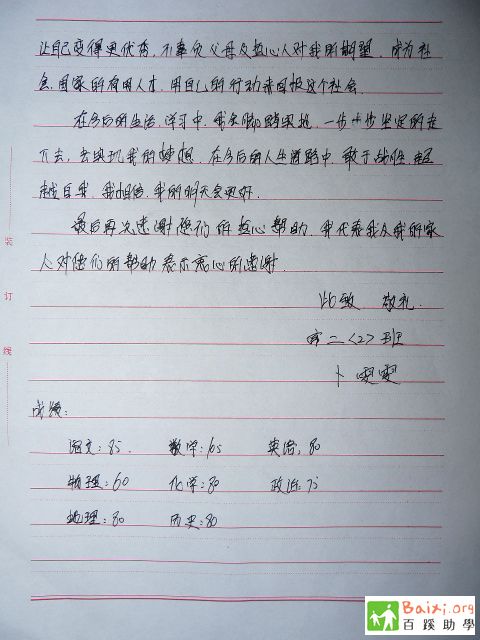 让自己变得更优秀，不辜负父母及热心人对我的期望，成为社
会、国家的有用人才，用自己的行动来回报这个社会。
在今后的生活、学习中，我会脚踏实地，一步一步坚定的走
下去，去实现我的梦想，在今后的人生道路中，敢于战胜、超
越自我，我相信，我的明天会更好。
最后再次感谢您们的热心帮助，我代表我及我的家
人对他们的帮助表示衷心的感谢。
此致 敬礼
高二<2>班
卜雯雯
成绩：
语文：85. 数学：105 英语：80
物理：60 化学：80 政治：75
地理：80 历史：80
装
订
线
Baixi.org
百蹊助學